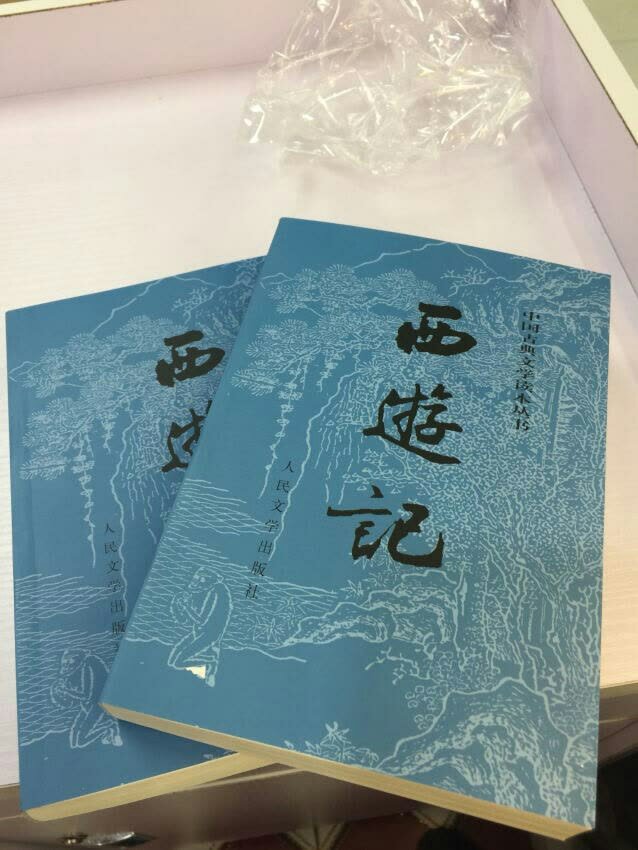 中国古典文学读本丛书
西遊記
人民文学出版社
西遊
人民文学出版